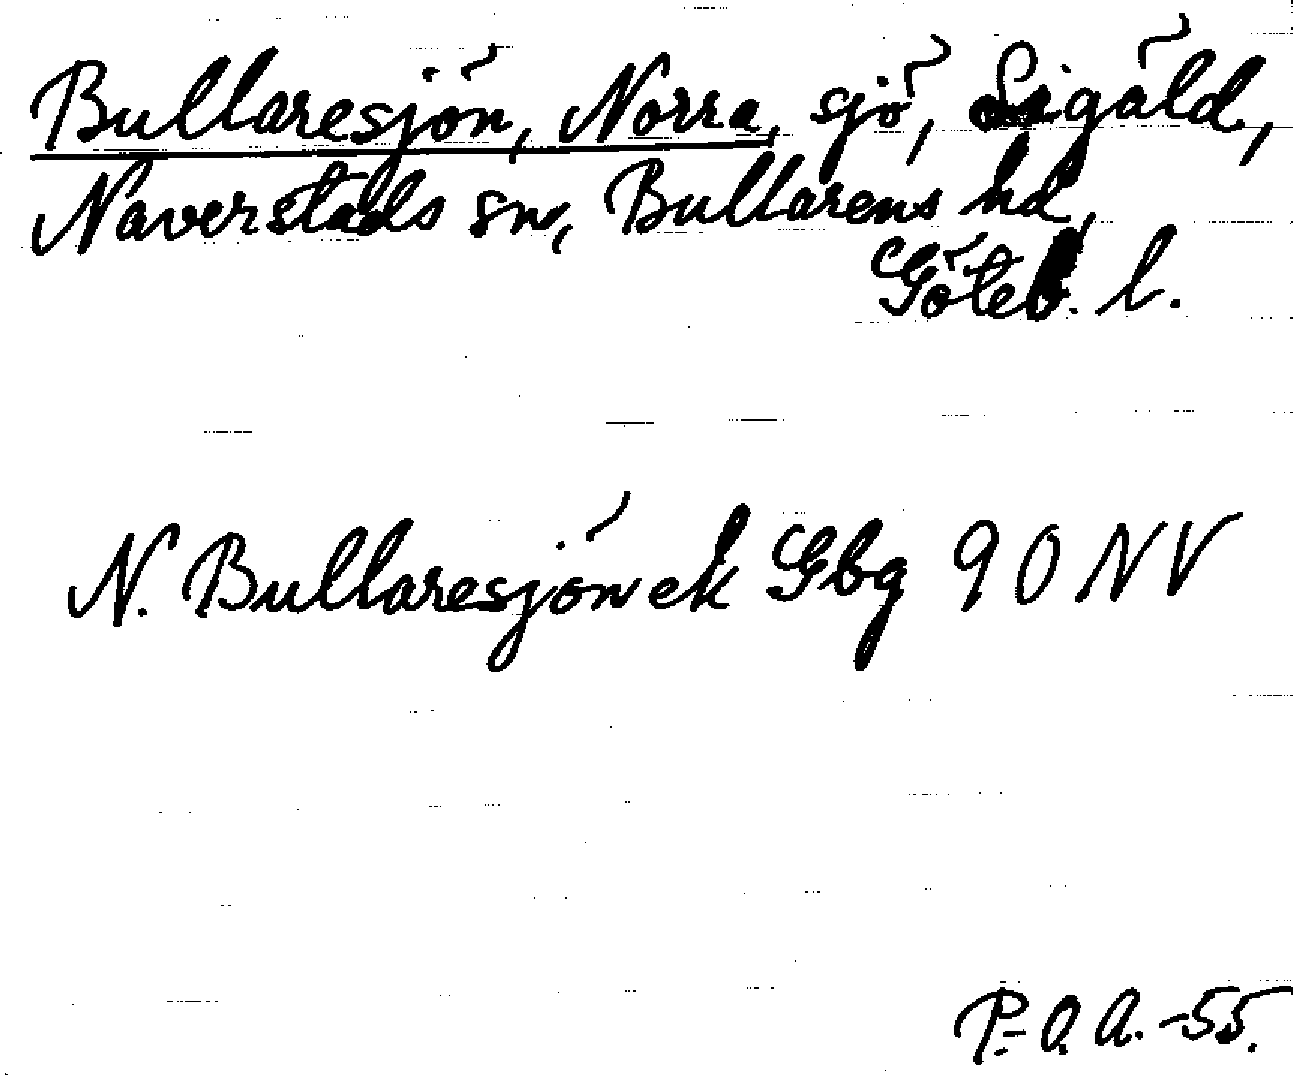 Bullaresjön, Norra, sjö, Sigäld,
Naverstads sn, Bullarens hd,
Göteb. l.
N. Bullaresjön ek Gbg 90 NV
P.-O. A. -55.